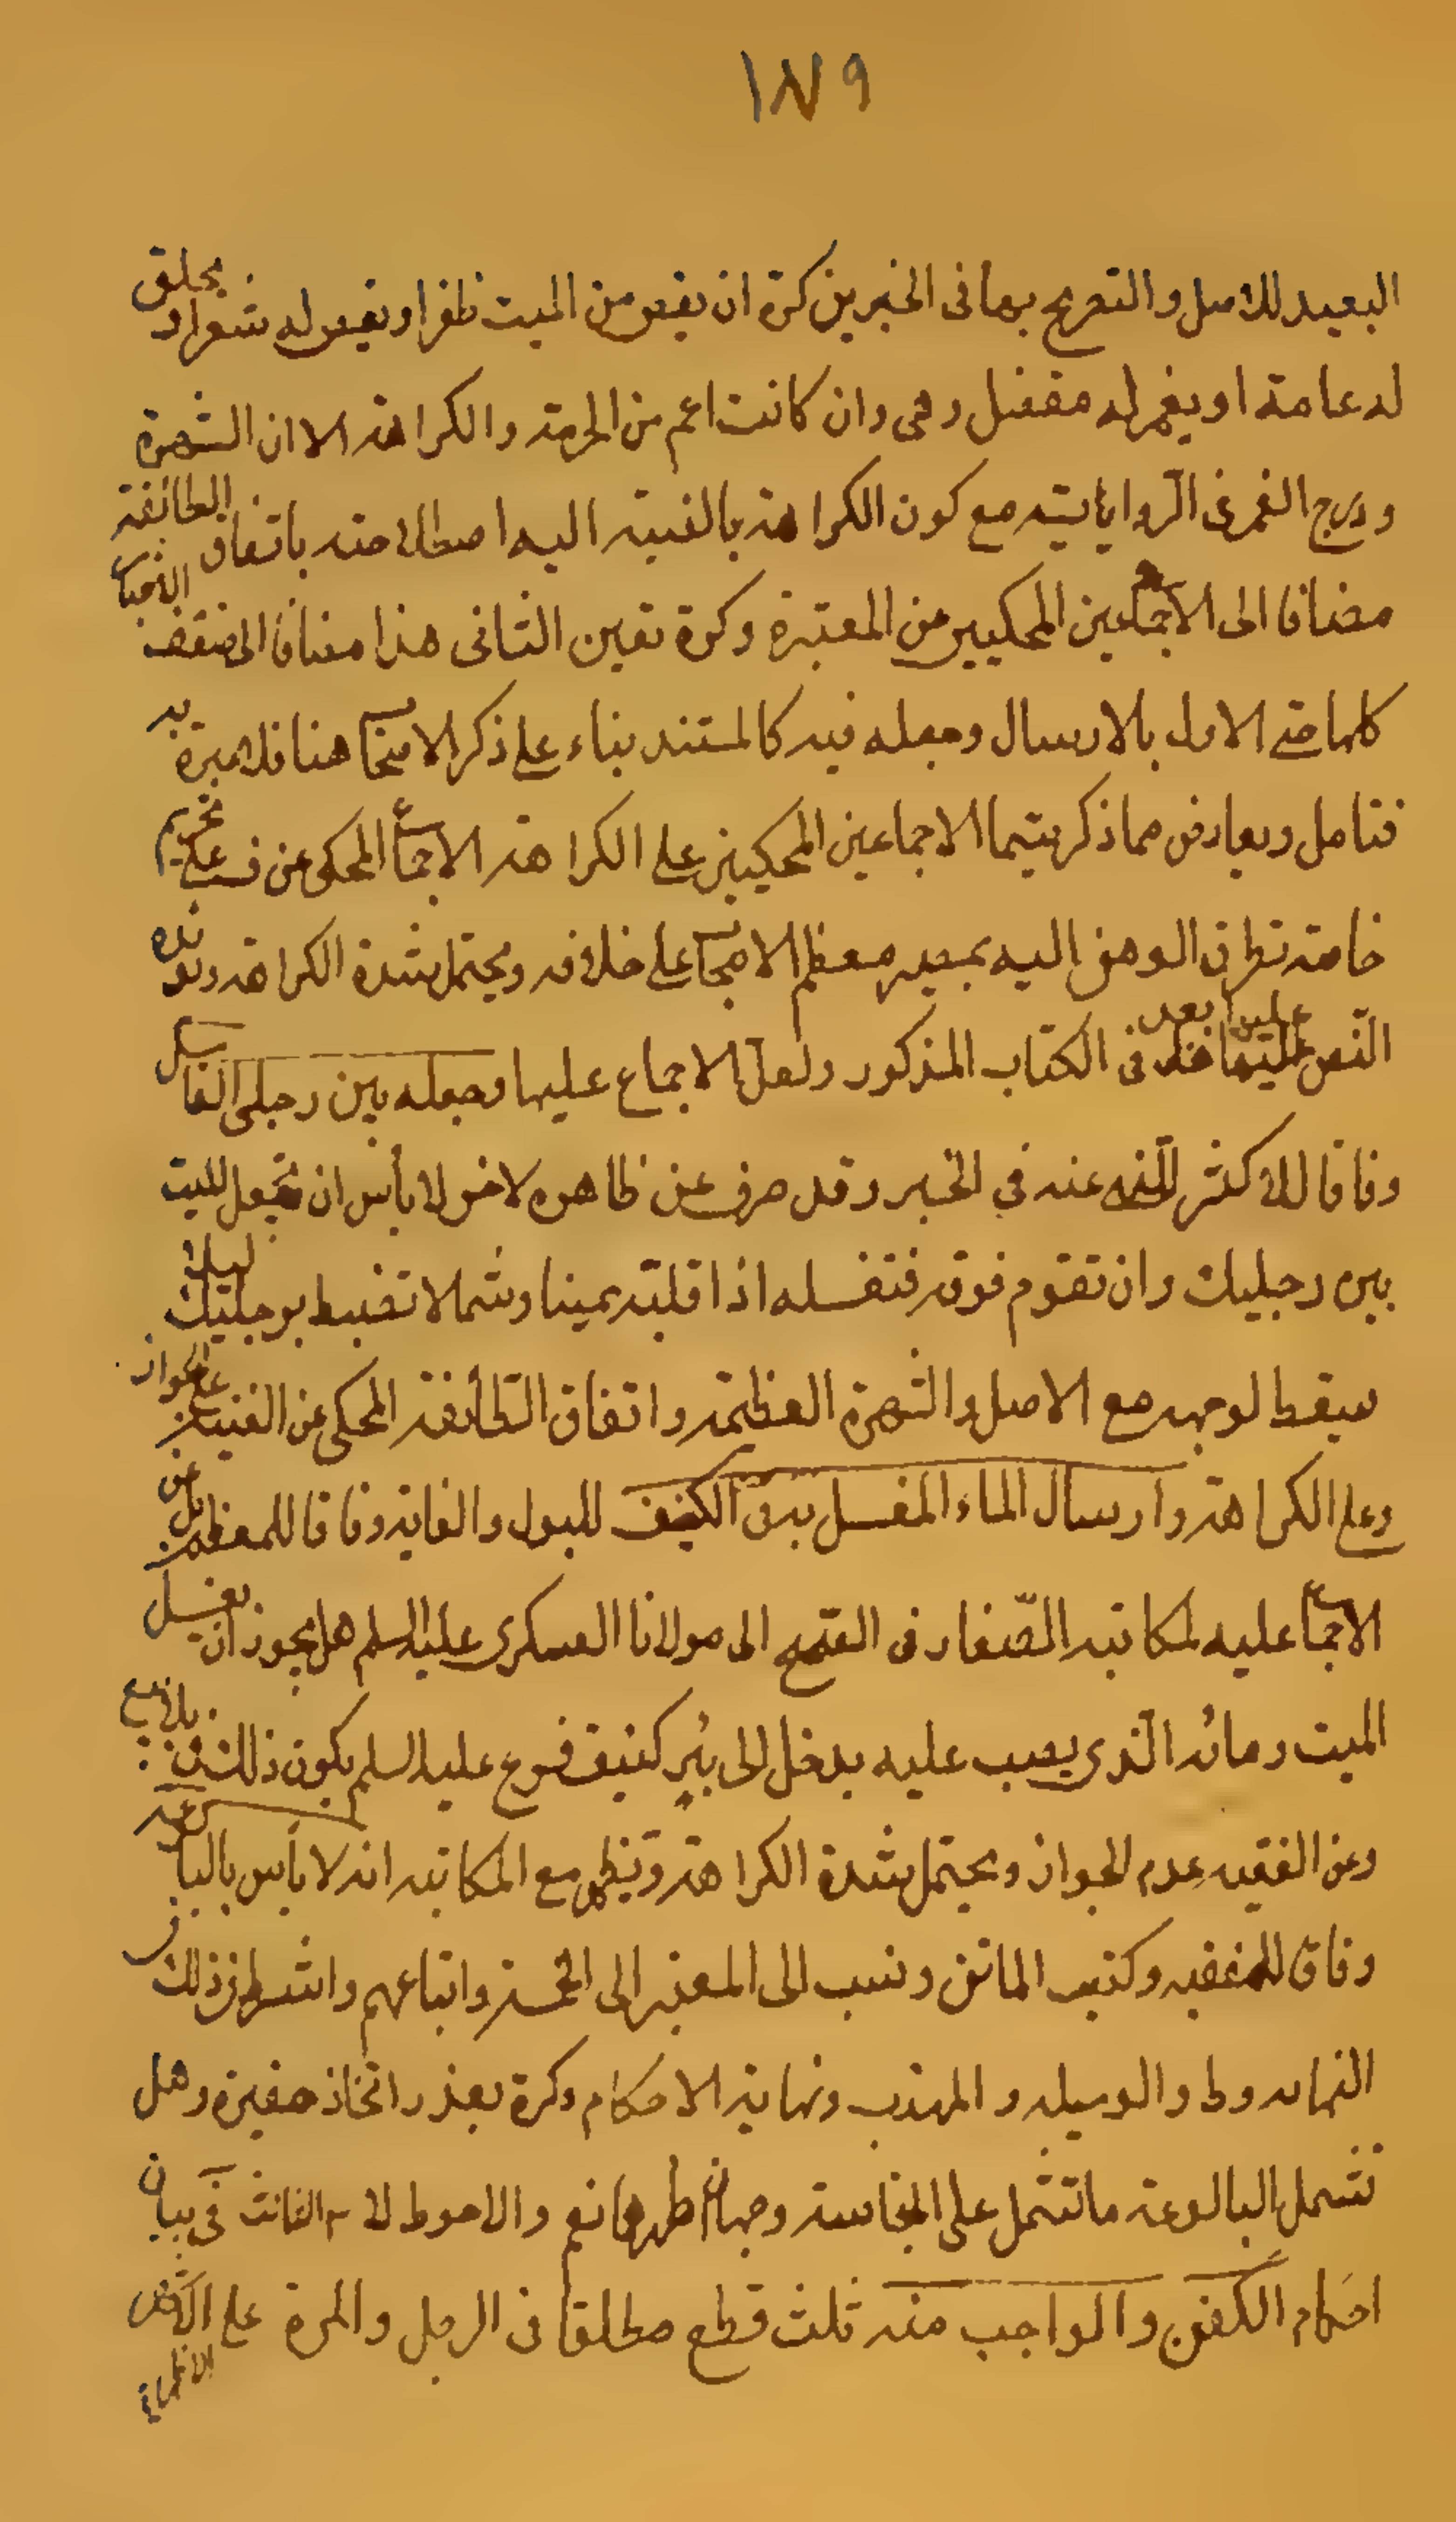 ١٨٩
البعيد للاصل والتصريح بها فى الخبرين كره ان يقص من الميت ظفر او يقص له شعر او يحلق
له عامة او يغمز له مفصل وهى وان كانت اعم من الحرمة والكراهة الا ان الشهرة
ودرج الغمز فى الرواياتية مع كون الكراهة بالنسبة اليه اصطلاحته باتفاق الطائفة
مضافا الى الاجماعين المحكيين من المعتبرة وكره تعين الثانى هذا مضافا الى ضعف الاخبار
كلها حتى الاول بالارسال وجعله فيه كالمستند بناء على ذكر الاصحاب هنا فلا عبرة به
فتامل ويعارض مما ذكر سيما الاجماعين المحكيين على الكراهة الاجماع المحكى عن ف على تحريم
خاصة تطرق الوهن اليه بمصير معظم الاصحاب على خلافه ويحتمل شدة الكراهة ويؤيده
النص عليها بعده فى الكتاب المذكور ولعل الاجماع عليها وجعله بين رجلى الغاسل
وفاقا للاكثر للنهى عنه في الخبر وقد صرف عن ظاهره لاخر لا بأس ان تجعل الميت
بين رجليك وان تقوم فوقه فتغسله اذا قلبته يمينا وشمالا تضبط برجليك لئلا
يسقط لوجهه مع الاصل والشهرة العظيمة واتفاق الطائفة المحكى عن الغنية على الجواز
وعلى الكراهة وارسال الماء المغسل به فى الكنيف للبول والغايه وفاقا للمعظم بل عن
الاجماع عليه لمكاتبه الصفار فى الصحيح الى مولانا العسكرى عليه السلم هل يجوز ان يغسل
الميت ومائه الذى يصب عليه يدخل الى بئر كنيف فوقع عليه السلم يكون ذلك فى بلاليع
وعن الفقيه عدم الجواز ويحتمل شدة الكراهة ويظهر مع المكاتبه انه لا بأس بالبالوعه
وفاق للفقيه وكتب الماتن ونسب الى المعتبر الى الخمسة واتباعهم واشترط فى ذلك
النهايه وط والوسيله والمهذب ونهاية الاحكام وكره تعذر اتخاذ حفيرة وهل
تشمل البالوعة ما تشتمل على النجاسة وجهان اظهرها نعم والاحوط لا الثالث فى بيان
احكام الكفن والواجب منه ثلث قطع مطلقا فى الرجل والمرة على